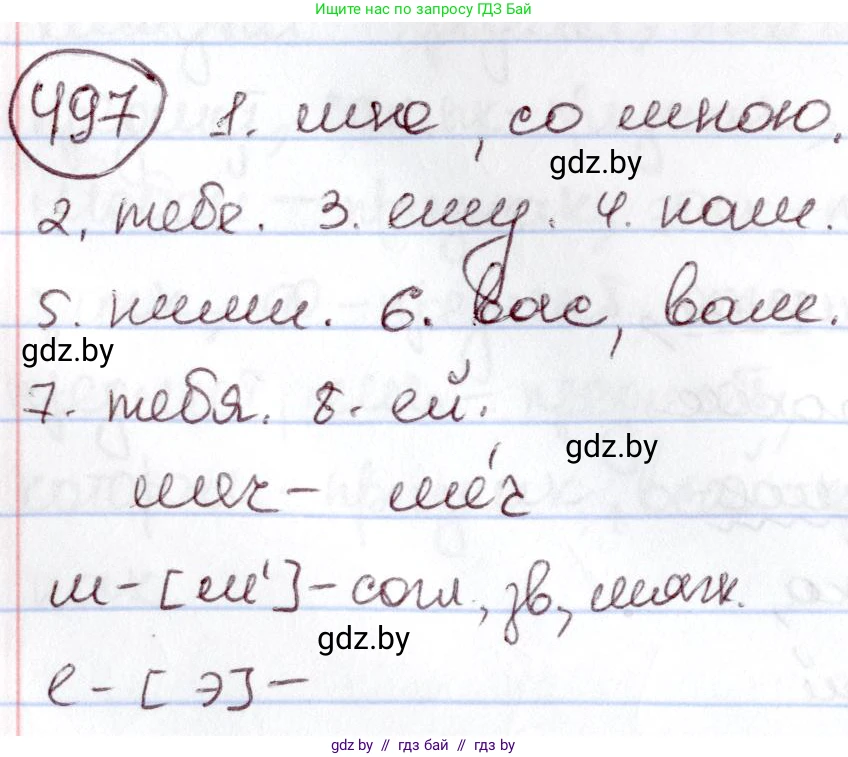 Ищите нас по запросу ГДЗ Бай
497 1. мне, со мною.
gdz.by
2. тебе. 3. ему. 4. нам.
5. ними. 6. вас, вам.
gdz.by
7. тебя. 8. ей.
gdz.by
меч – ме́ч
м – [м'] – согл., зв., мягк.
gdz.by
е – [э] –
gdz by // гдз бай // гдз by